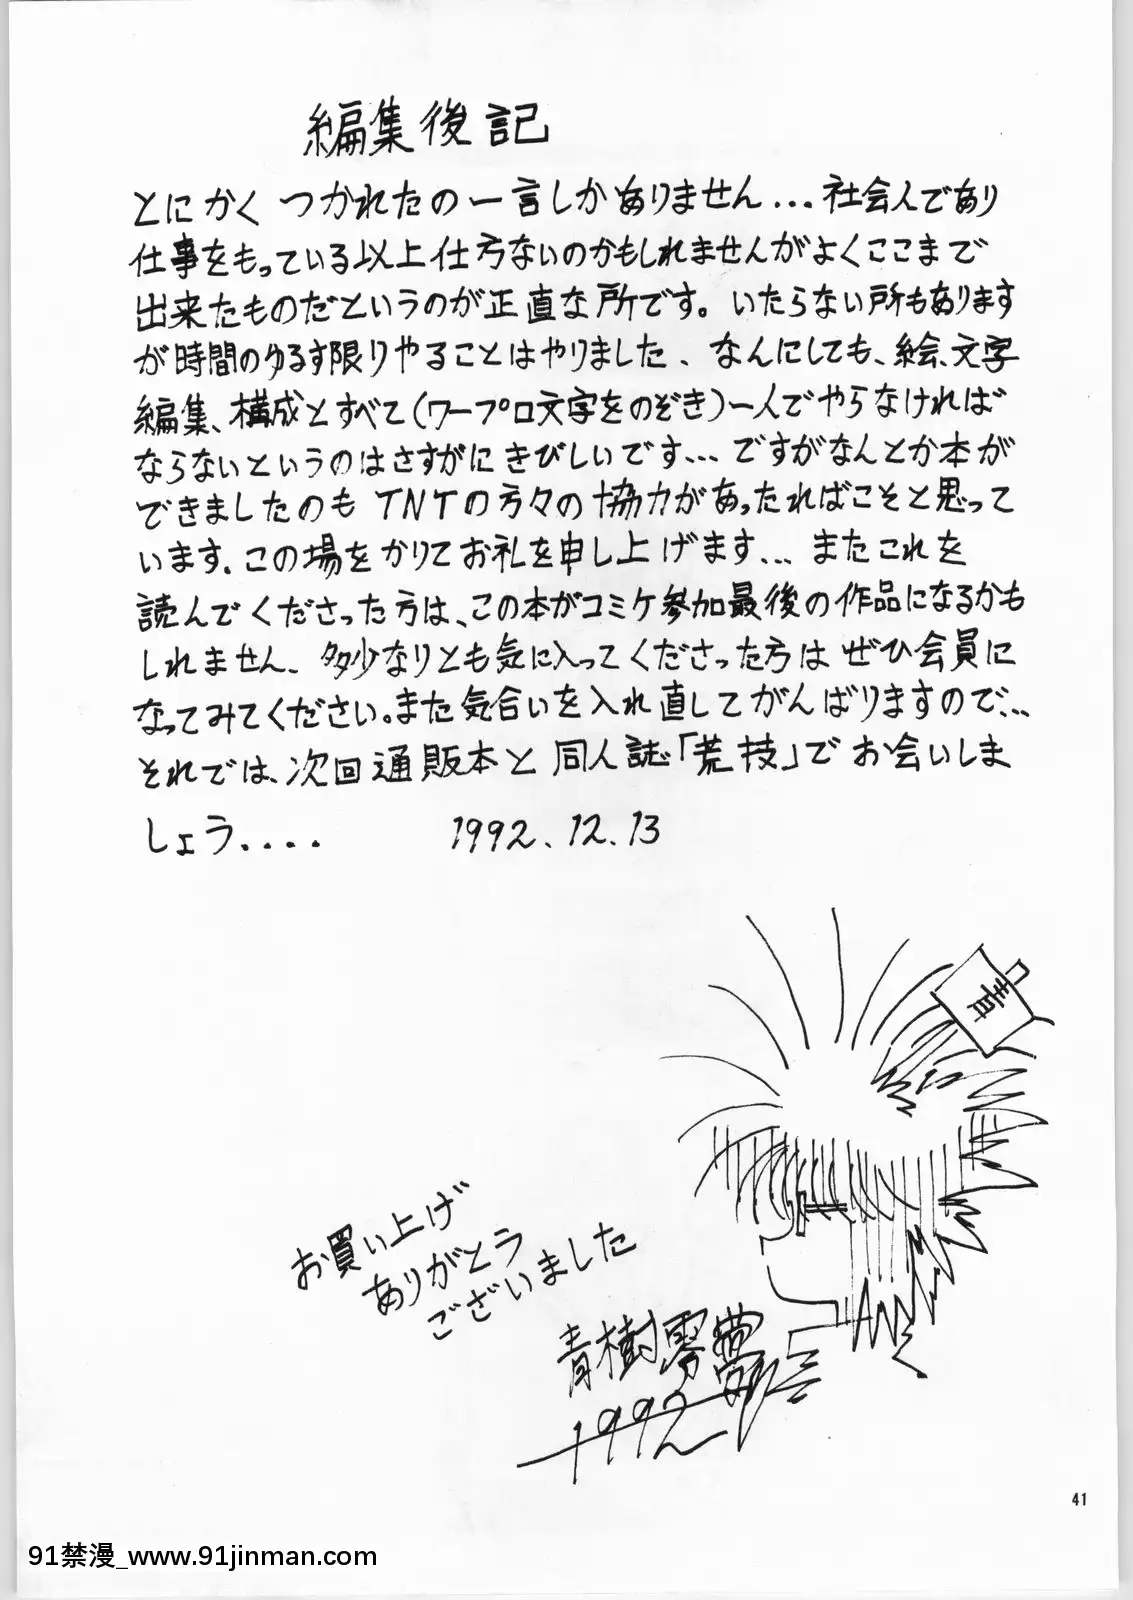 編集後記
とにかく つかれたの一言しかありません... 社会人であり
仕事をもっている以上仕方ないのかもしれませんがよくここまで
出来たものだというのが正直な所です。いたらない所もあります
が時間のゆるす限りやることはやりました、なんにしても、絵、文字
編集、構成とすべて(ワープロ文字をのぞき)一人でやらなければ
ならないというのはさすがにきびしいです... ですがなんとか本が
できましたのも TNTの方々の協力があったればこそと思って
います。この場をかりてお礼を申し上げます... またこれを
読んでくださった方は、この本がコミケ参加最後の作品になるかも
しれません、多少なりとも気に入ってくださった方は ぜひ会員に
なってみてください。また気合いを入れ直してがんばりますので...
それでは、次回通販本と 同人誌「荒技」でお会いしま
しょう.... 1992.12.13
青
お買い上げ
ありがとう
ございました
青樹零夢
1992
41
91禁漫_www.91jinman.com